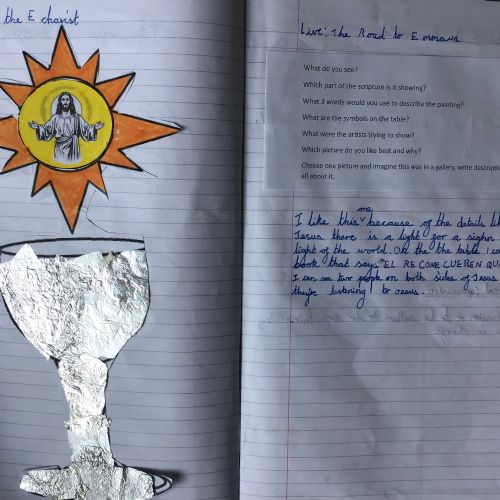 the E charist
Live: The Road to Emmaus
What do you see?
Which part of the scripture is it showing?
What 3 words would you use to describe the painting?
What are the symbols on the table?
What were the artists trying to show?
Which picture do you like best and why?
Choose one picture and imagine this was in a gallery, write
all about it.
one
I like this ^ because of the details
Jesus there is a light for a sighn
light of the world. On the the table I
book that says "EL RE CONE CUEREN
I can see two people on both sides of Jesus
listening to Jesus.